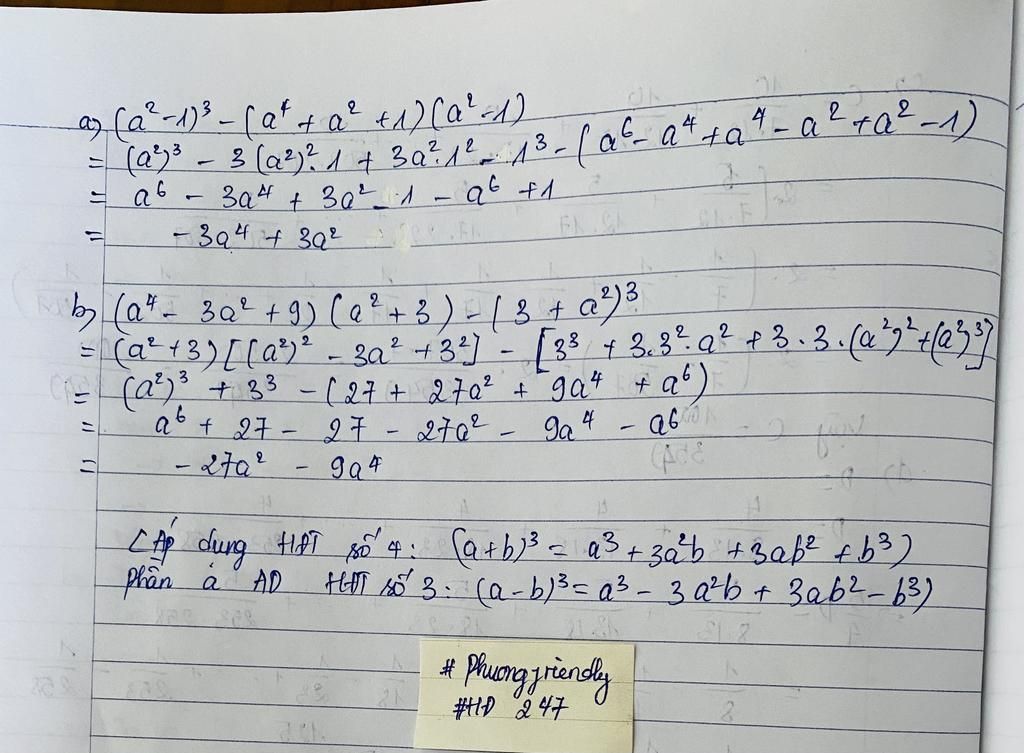 a) (a² - 1)³ - (a⁴ + a² + 1)(a² - 1)
= (a²)³ - 3(a²)².1 + 3a².1² - 1³ - (a⁶ - a⁴ + a⁴ - a² + a² - 1)
= a⁶ - 3a⁴ + 3a² - 1 - a⁶ + 1
= - 3a⁴ + 3a²
b) (a⁴ - 3a² + 9)(a² + 3) - (3 + a²)³
= (a² + 3)[(a²)² - 3a² + 3²] - [3³ + 3.3².a² + 3.3.(a²)² + (a²)³]
= (a²)³ + 3³ - (27 + 27a² + 9a⁴ + a⁶)
= a⁶ + 27 - 27 - 27a² - 9a⁴ - a⁶
= - 27a² - 9a⁴
(Áp dung HĐT số 4: (a+b)³ = a³ + 3a²b + 3ab² + b³)
phần a AD HĐT số 3: (a-b)³ = a³ - 3a²b + 3ab² - b³)
# Phuongfriendly
#HD 247